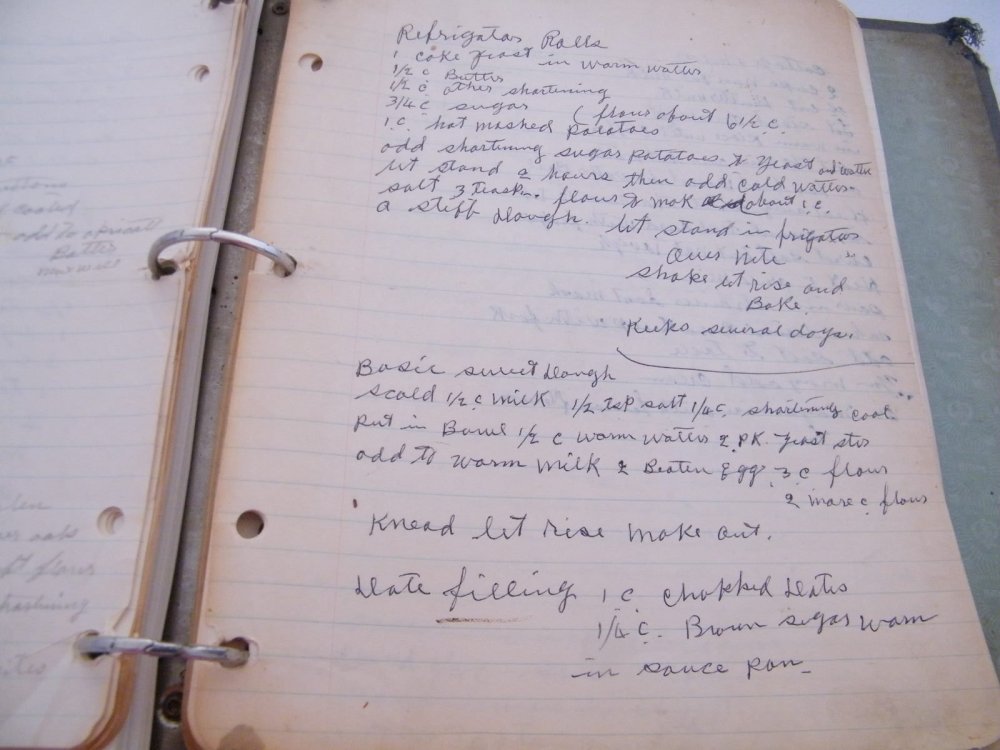 Refrigator Rolls
1 cake yeast in warm watter
1/2 c Butter
1/2 c other shortening
3/4 c sugar (flour about 6 1/2 c.
1 c. hot mashed potatoes
add shortning sugar potatoes to yeast and watter
let stand 2 hours then add cold watter
salt 3 teaspn. flour to mak about 1 c.
a stiff dough. let stand in frigator
Over Nite
shake let rise and
Bake.
Keeks several days.
Basic sweet dough
scald 1/2 c milk 1/2 tsp salt 1/4 c. shortening cool
put in Bowl 1/2 c warm watter 2 PK. yeast
add to warm milk 2 Beaten Egg 3 c flour
2 more c. flour
Knead let rise make out.
Date filling 1 c chopped Dates
1/4 c. Brown sugar warm
in sauce pan
cooled
add to
Batter
flour
shortening